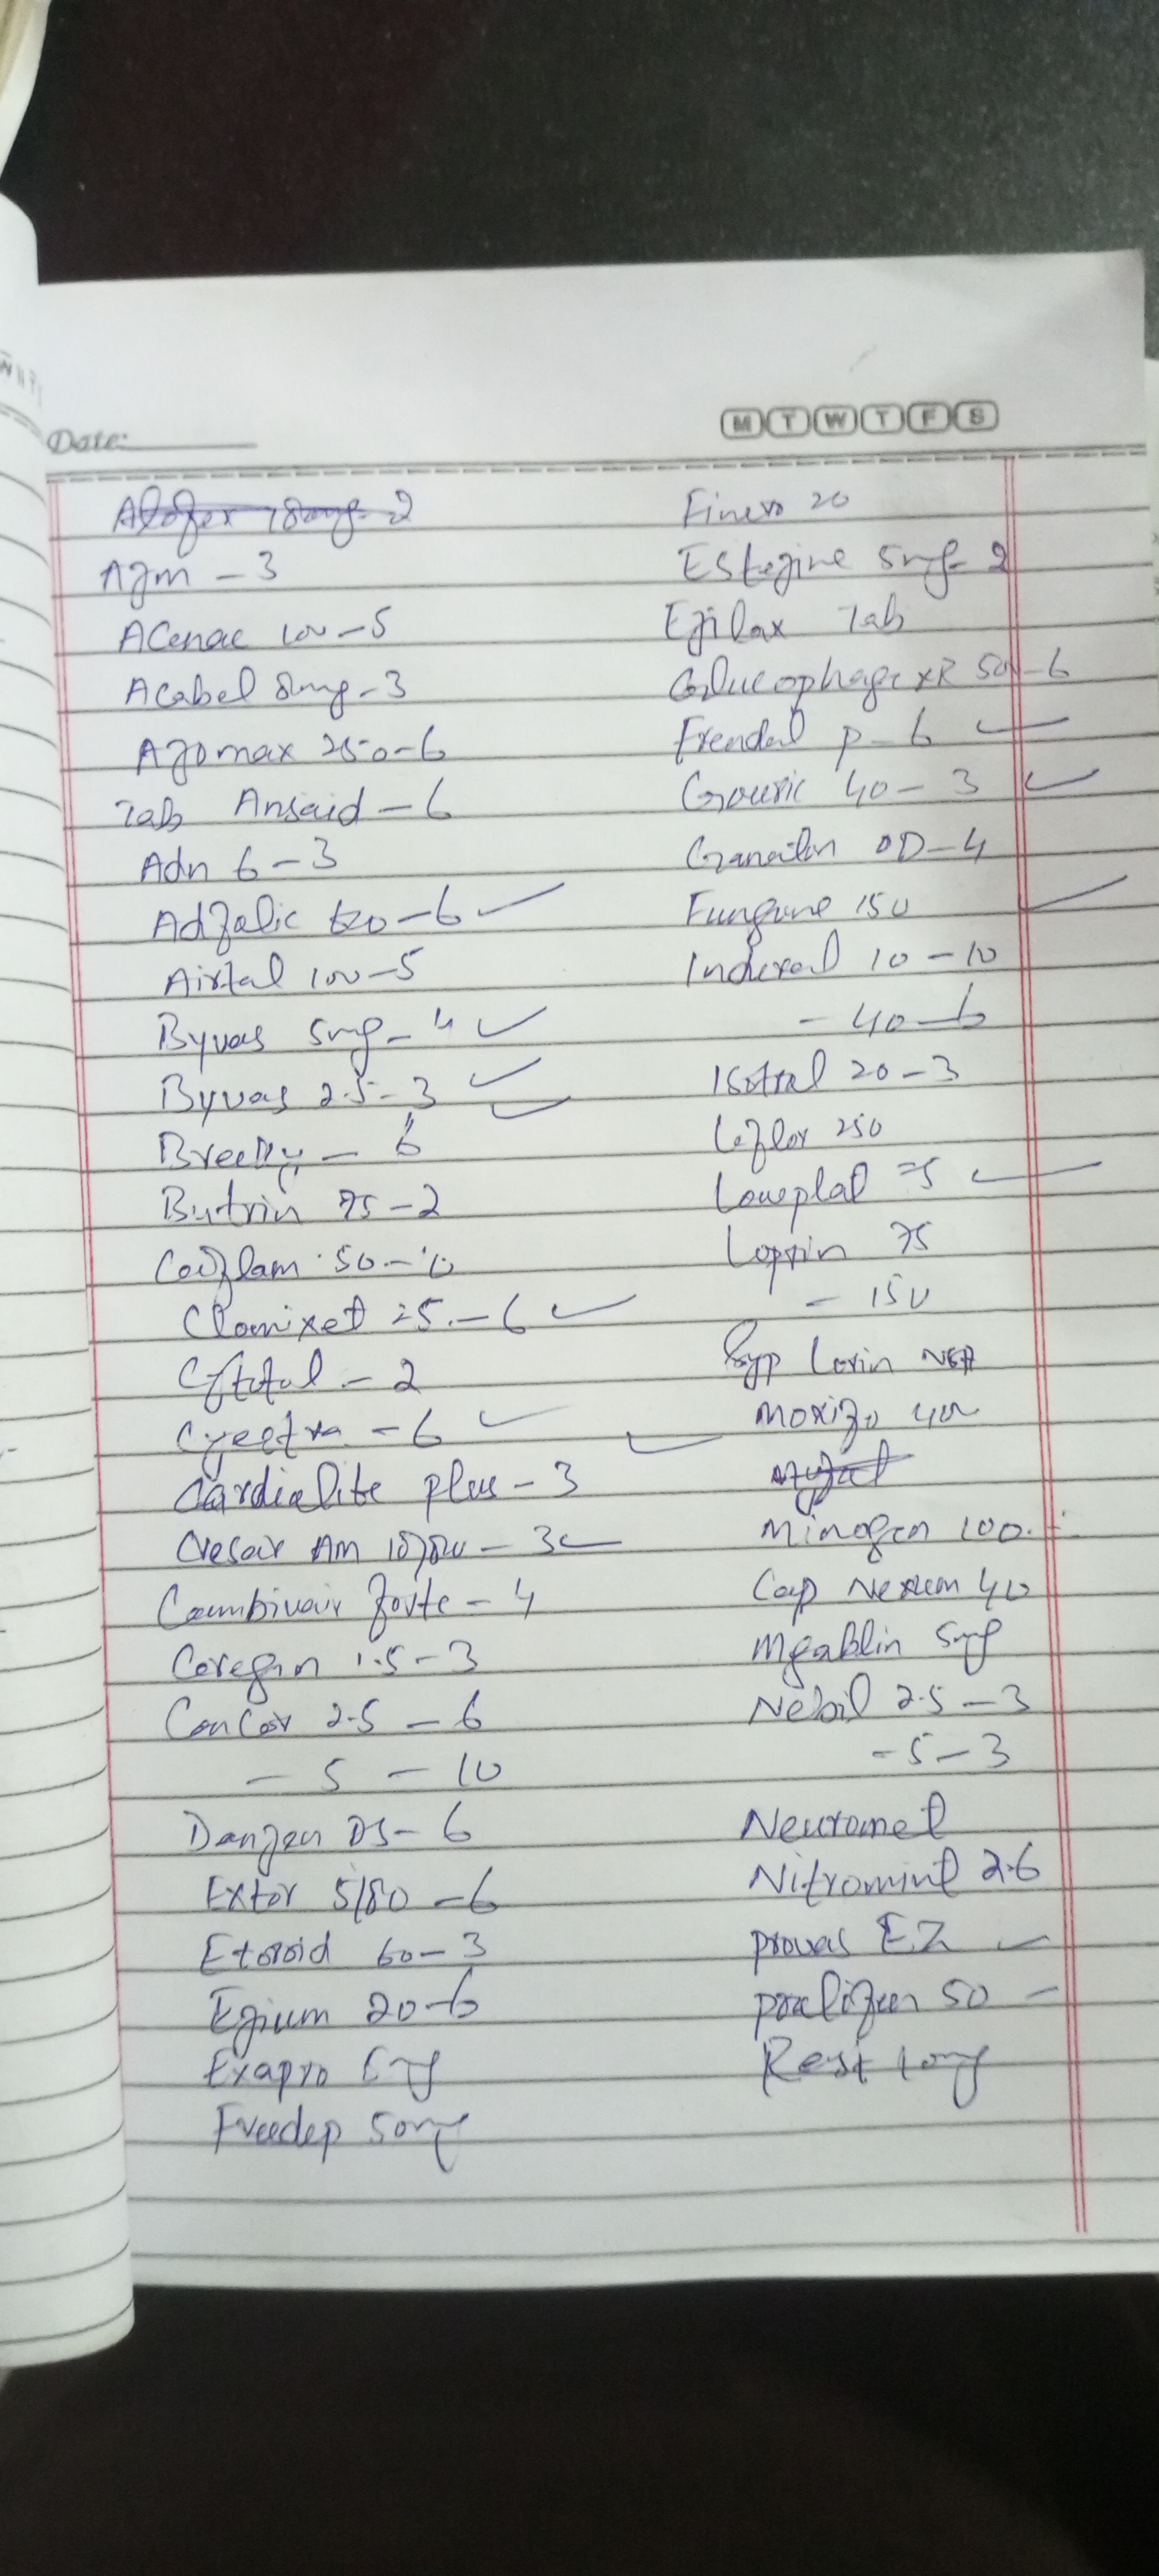 Date:
M T W T F S
Azm - 3
Acenac 100 - 5
Acabel 8mg - 3
Azomax 250 - 6
Tab Ansaid - 6
Adn 6 - 3
Adfolic 620 - 6
Airtal 100 - 5
Byvas 5mg - 4
Byvas 2.5 - 3
Breeky - 6
Butrin 75 - 2
Caflam 50 - 10
Clomixet 25 - 6
Cftotal - 2
- 6
Cardiolite plus - 3
Cresar Am - 3
Combivair forte - 4
Coregan 1.5 - 3
Concor 2.5 - 6
- 5 - 10
Danzen DS - 6
Extor 5/80 - 6
Etoroid 60 - 3
Ezium 20 - 6
Exapro
Freedep 50mg
20
Estezine 5mg - 2
Ezilax Tab
Glucophage XR 500 - 6
Frendol P - 6
Gouric 40 - 3
Ganaton OD - 4
Fungone 150
Inderal 10 - 10
- 40 - 6
Isotral 20 - 3
Leflox 250
Lowplat 75
Loprin 75
- 150
Syp Lorin NSA
Moxifo 400
Minogen 100
Cap Nexum 40
Mgablin 5mg
Nebil 2.5 - 3
- 5 - 3
Neuromet
Nitromint 2.6
provas EZ
50